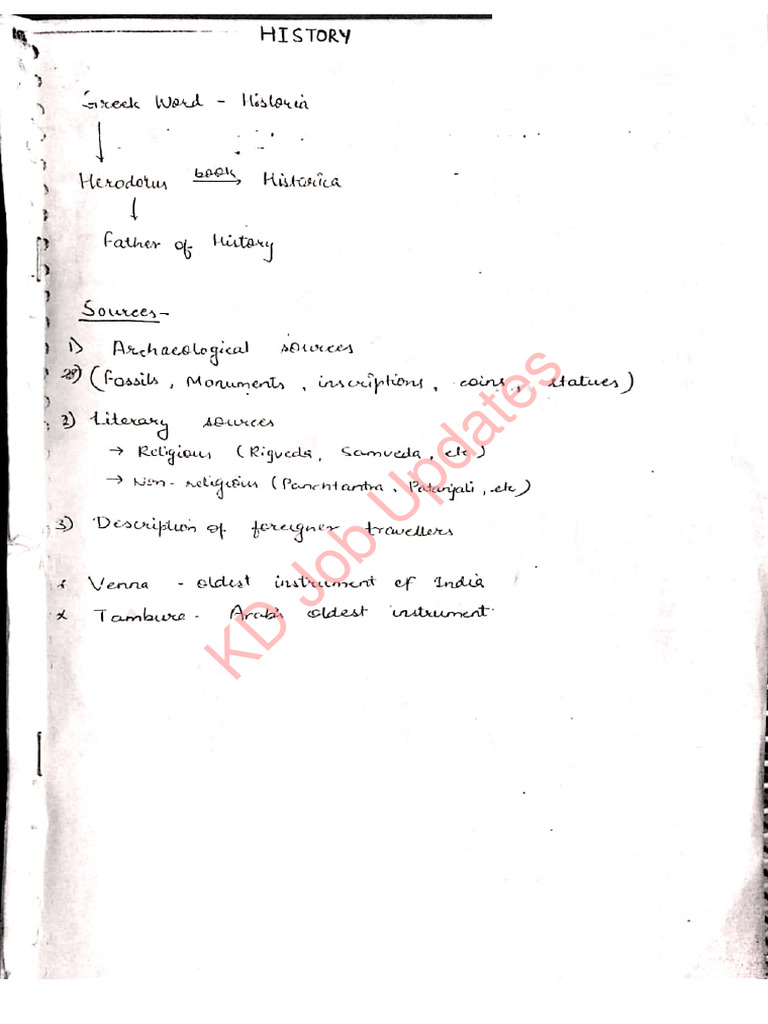 HISTORY
Greek Word - Historia
Herodotus book Historica
Father of History
Sources-
1) Archaeological sources
(Fossils, Monuments, inscriptions, coins, statues)
2) Literary sources
→ Religious (Rigveda, Samveda, etc)
→ Non-religious (Panchtantra, Patanjali, etc)
3) Description of foreigner travellers
x Venna - oldest instrument of India
x Tambura - Arab's oldest instrument
KD Job Updates